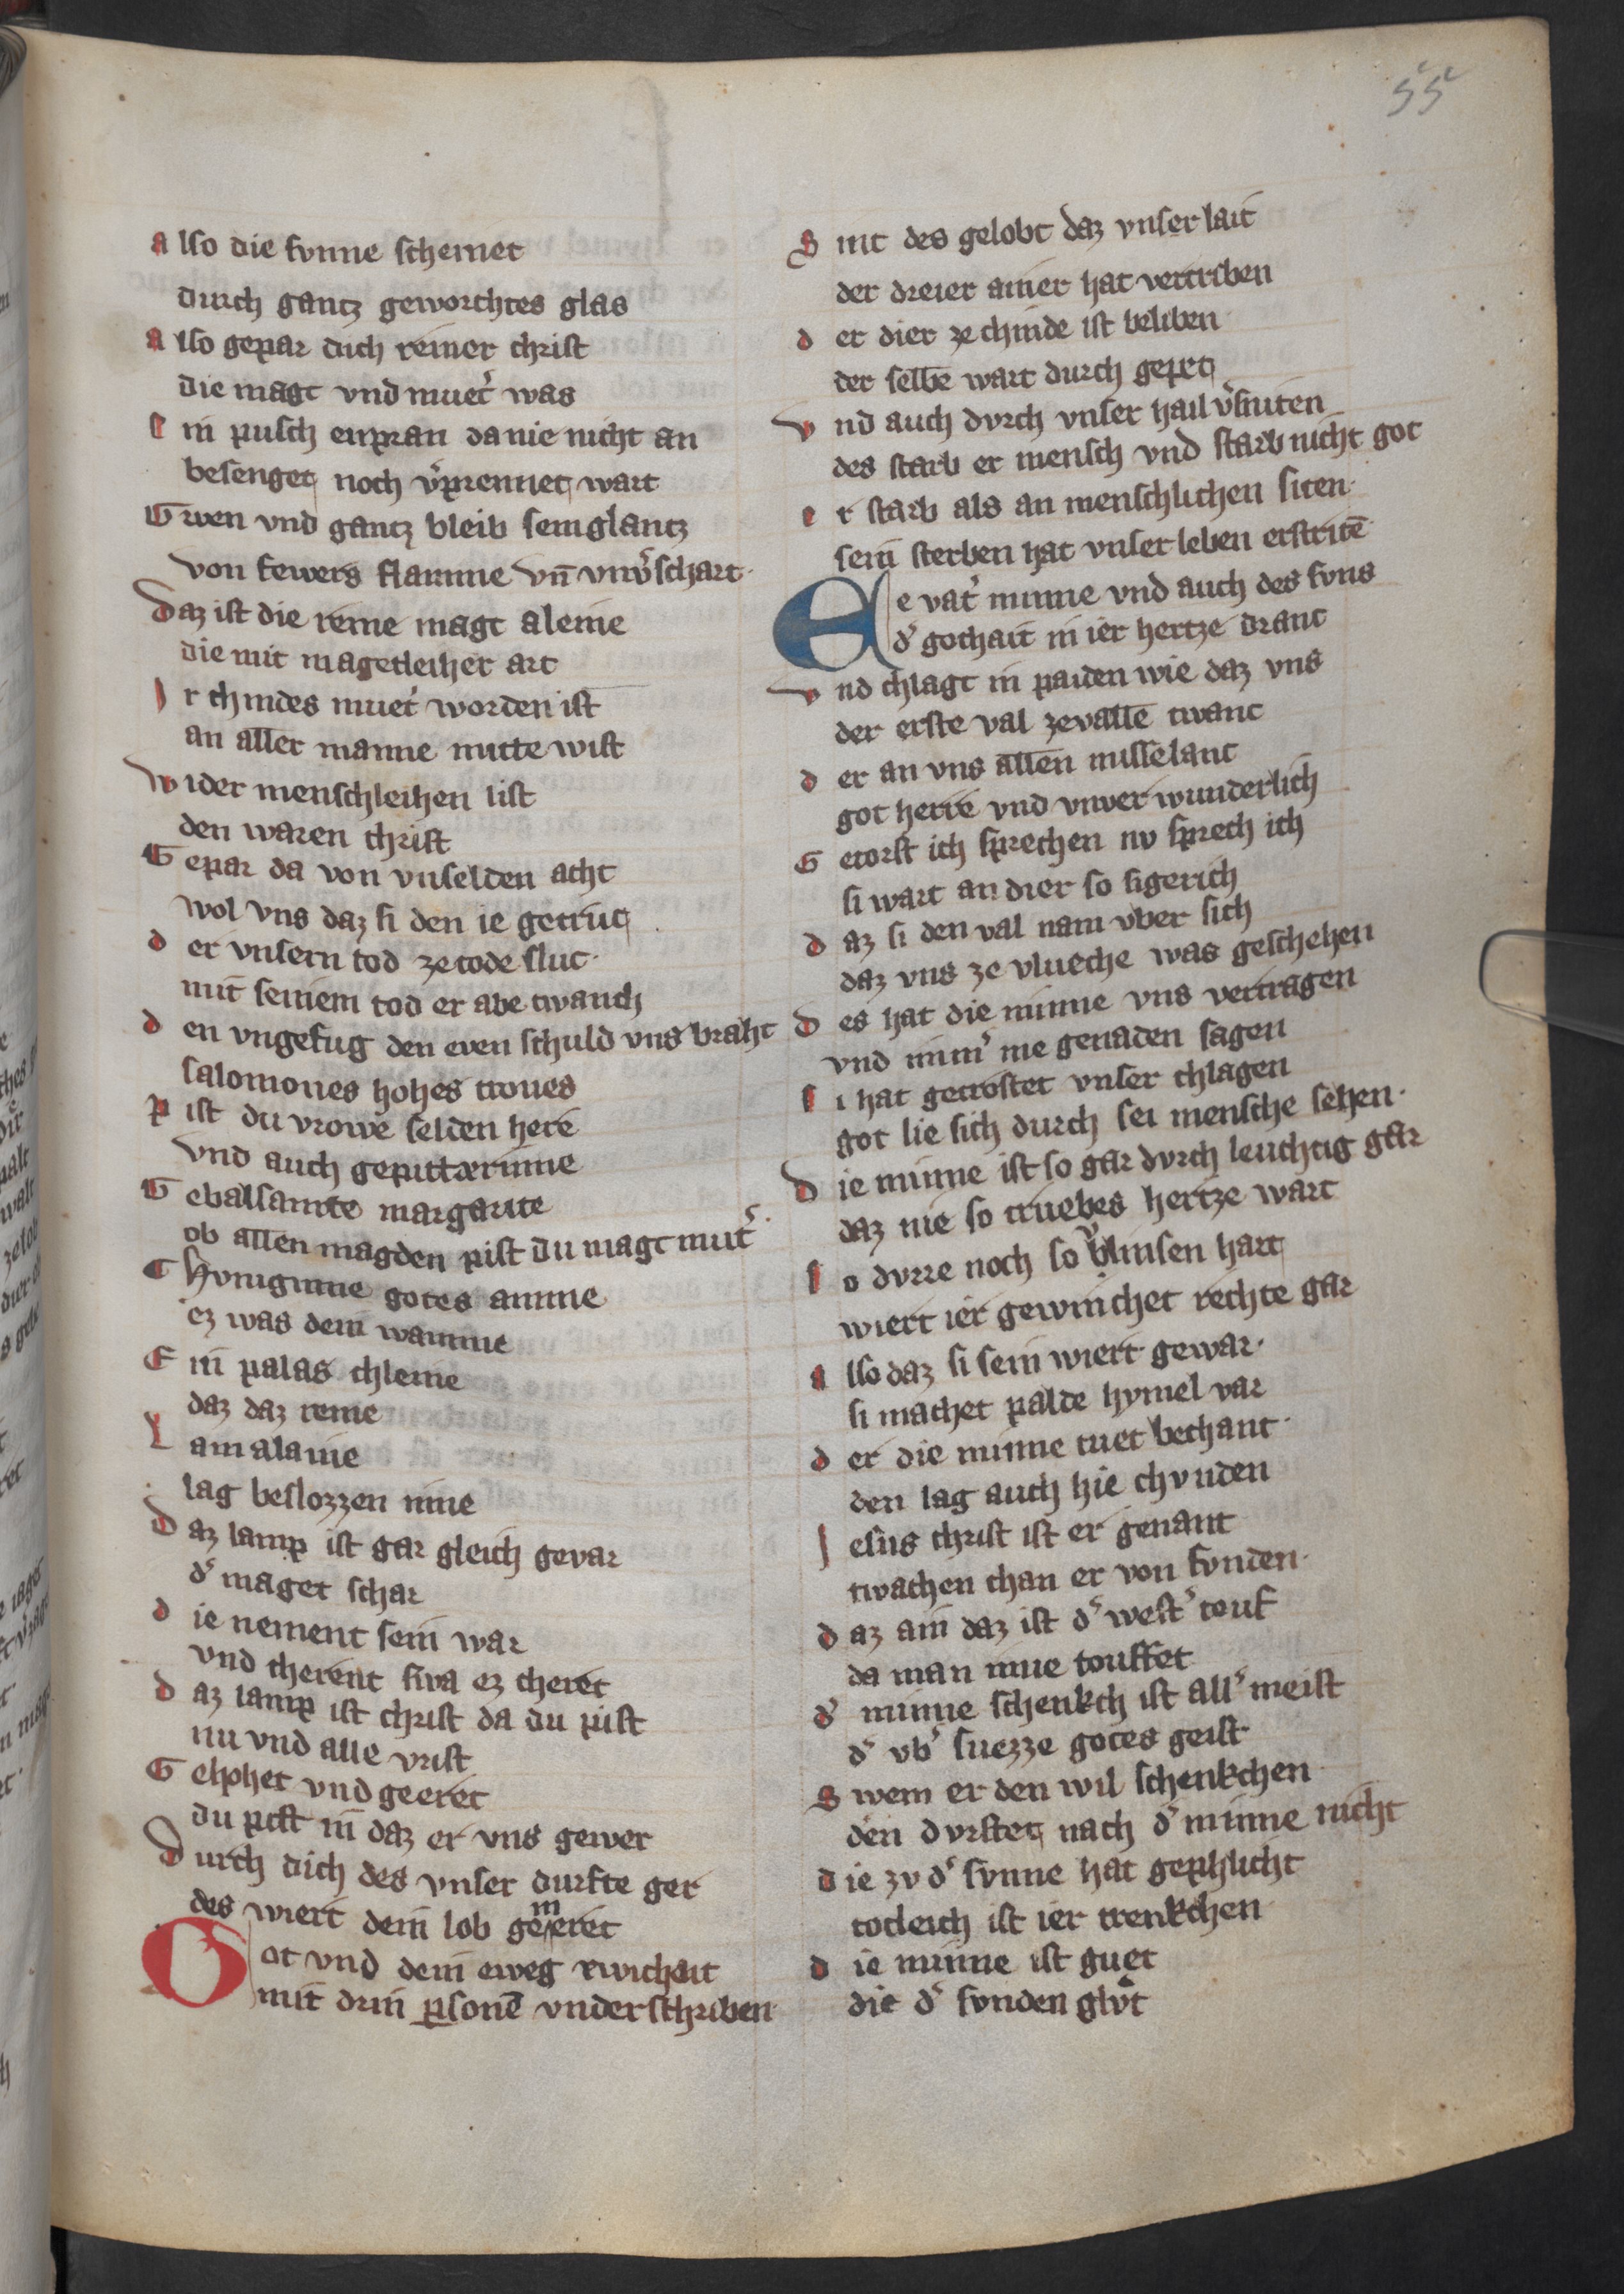 55
also die sunne scheinet
durch gantz geworchtes glas
also gepar dich reiner christ
die magt vnd muet͛ was
ein pusch enpran da nie nicht an
besenget noch v͛prennet wart
Grven vnd gantz bleib sein glantz
von fewers flamme vn̄ vnv͛schart·
Daz ist die reine magt aleine
die mit magetleiher art
Ir chindes muet͛ worden ist
an aller manne mitte wist
wider menschleihen list
den waren christ
Gepar da von vnselden acht
wol vns daz si den ie getruc
der vnsern tod ze tode sluc·
mit seinem tod er abe twanch
den vngefug den even schuld vns braht
salomones hohes trones
pist du vrowe selden here
vnd auch gepittærinne
Gebalsamte margarite
ob allen magden pist du magt mut͛
Chvniginne gotes amme
ez was dein wamme
Ein palas chleine
daz daz reine
Lam alaine
lag beslozzen inne
Daz lamp ist gar gleich gevar
d͛ maget schar
die nement sein war
vnd cherent swa ez cheret
daz lamp ist christ da du pist
nu vnd alle vrist
Gehohet vnd geeret
du pist in daz er vns gewer
Durch dich des vnser durfte ger
des wiert dein lob gemeret
Got vnd dein eweg ewichait
mit drin p̱sonē vnderschriben
Sint des gelobt daz vnser lait
der dreier ainer hat vertriben
der dier ze chinde ist beliben
der selbe wart durch gepet
vnd auch dvrch vnser hail v͛sniten
des starb er mensch vnd starb nicht got
er starb als an menschlichen siten·
sein sterben hat vnser leben erstritē
Ee vat͛ minne vnd auch des svns
d͛ gothait in ier hertze dranc
vnd chlagt in paiden wie daz vns
der erste val ze vallē twanc
der an vns allen misselanc
got herre vnd vnver wunderlich
Getorst ich sprechen nv sprech ich
si wart an dier so sigerich
daz si den val nam vber sich
daz vns ze vlueche was geschehen
des hat die minne vns vertragen
vnd nim͛ me genaden sagen
si hat getrostet vnser chlagen
got lie sich durch sei mensche sehen·
Die minne ist so gar dvrch leuchtig gar
daz nie so truebes hertze wart
so dvrre noch so v͛vlinsen hart
wiert ier gewinchet rechte gar
also daz si sein wiert gewar·
si machet palde hymel var
der die minne tuet bechant·
den lag auch hie chvnden
Iesus christ ist er genant
twachen chan er von svnden·
daz ain daz ist d͛ west͛ touf
da man inne touffet
d͛ minne schenkch ist all͛ meist
d͛ vb͛ suezze gotes geist
Swem er den wil schenkchen
den dvrstet nach d͛ minne nicht
die zv d͛ svnne hat gephlicht
tocleich ist ier trenkchen
die minne ist guet
die d͛ svnden glvt